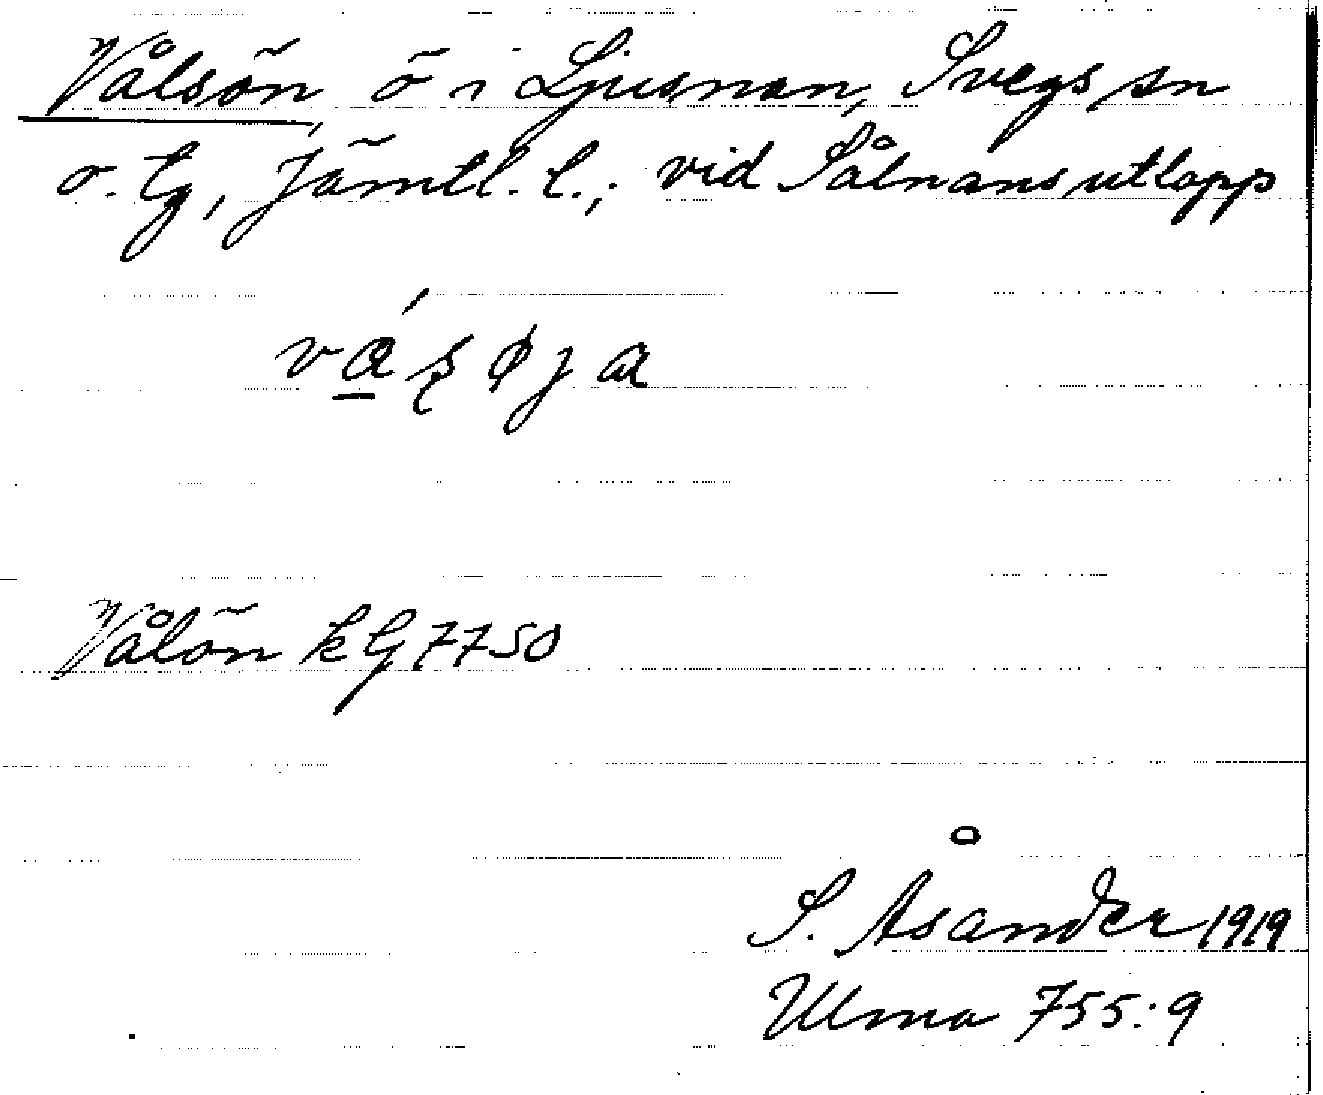 Vålsön, ö i Ljusnan, Svegs sn
o. tg, Jämtl. l.; vid Sålnans utlopp
Vålön kG 7750
S. Åsander 1919
Ulma 755:9